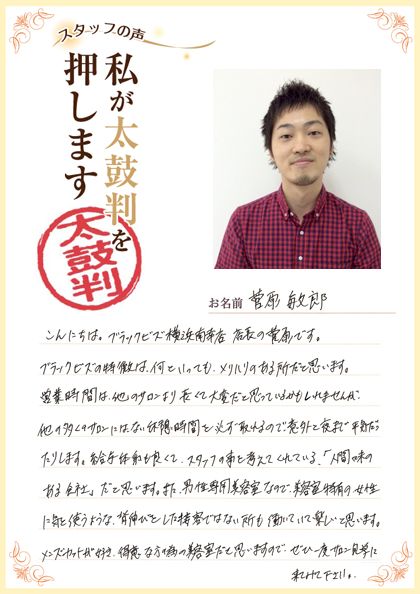 スタッフの声
私が太鼓判を
押します
太鼓判
お名前 菅原 敏郎
こんにちは。ブラックビズ横浜南幸店 店長の菅原です。
ブラックビズの特徴は、何といっても、メリハリのある所だと思います。
営業時間は、他のサロンより長くて大変だと思っているかもしれませんが、
他の多くのサロンにはない休憩時間を必ず取れるので意外と夜まで平気だっ
たりします。給与体系も良くて、スタッフの事を考えてくれている、「人間味の
ある会社」だと思います。また、男性専用美容室なので、美容室特有の女性
に気を使うような、背伸びをした接客ではない所も働いていて楽しいと思います。
メンズカットが好き、得意な方の為の美容室だと思いますので、ぜひ一度サロン見学に
来てみて下さい。